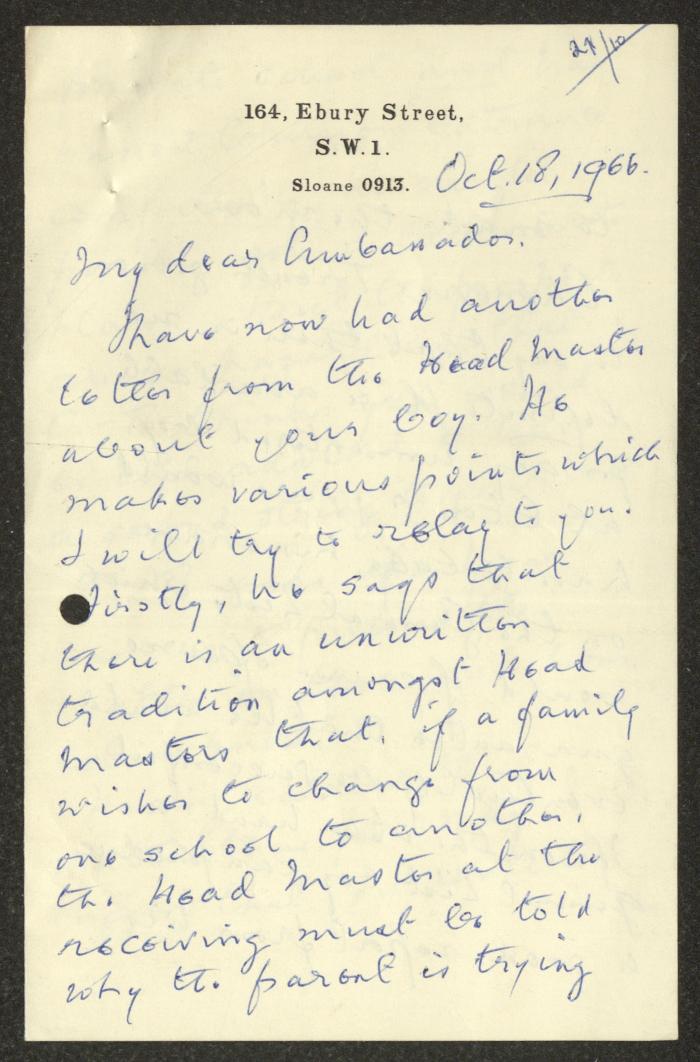 21/10
164, Ebury Street,
S.W.1.
Sloane 0913.
Oct. 18, 1966.
My dear Ambassador.
I have now had another
letter from the Head Master
about your boy. He
makes various points which
I will try to relay to you.
Firstly, he says that
there is an unwritten
tradition amongst Head
Masters that, if a family
wishes to change from
one school to another,
the Head Master at the
receiving must be told
why the parent is trying